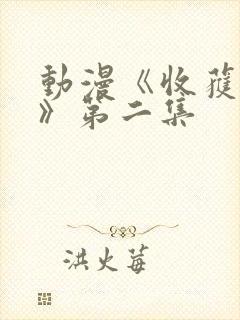 動漫《收蒦
》第二集
洪火莓